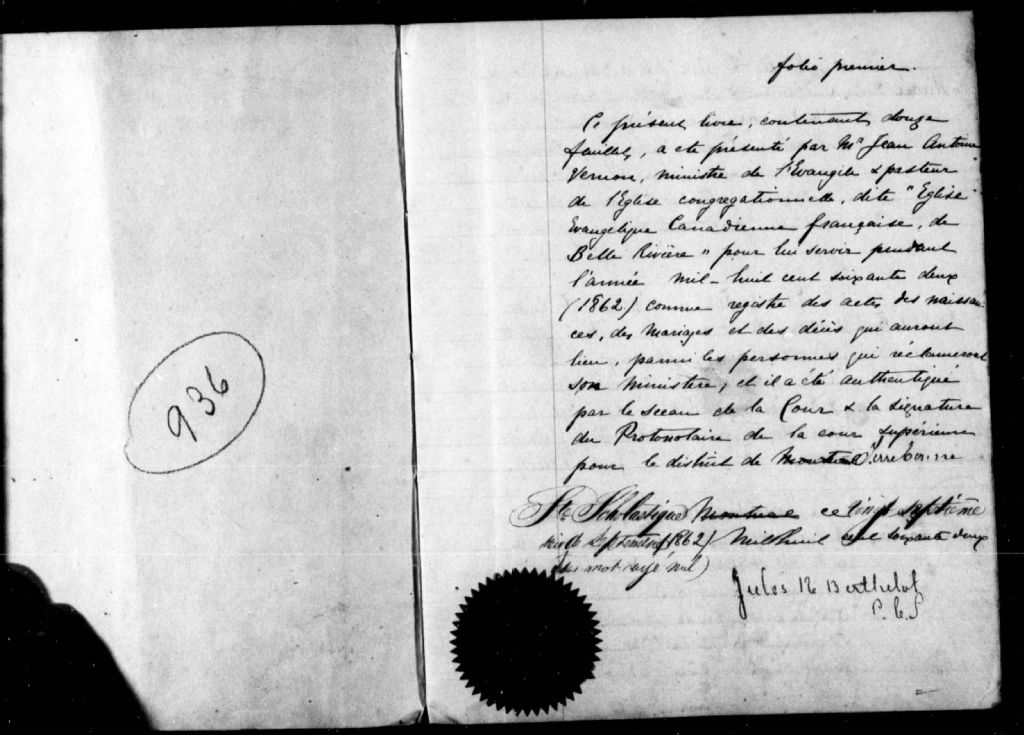 936
folio premier.
Ce présent livre, contenant douze
feuillets, a été présenté par Mr Jean Antoine
Vernon, ministre de l'Evangile & pasteur
de l'Eglise congregationnelle, dite "Eglise
Evangélique Canadienne française, de
Belle Rivière" pour lui servir pendant
l'année mil-huit cent soixante deux
(1862) comme registre des actes des naissan-
ces, des mariages et des décès qui auront
lieu, parmi les personnes qui réclameront
son ministère, et il a été authentiqué
par le sceau de la Cour & la signature
du Protonotaire de la cour supérieure
pour le district de Montréal Terrebonne
Ste Scholastique Montreal ce vingt septième
de Septembre (1862) mil huit cent soixante deux
mot rayé nul)
Jules R Berthelot
P. C. S